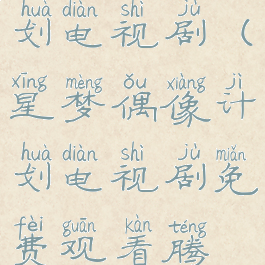 huà diàn shì jù
划电视剧（
xīng mèng ǒu xiàng jì
星梦偶像计
huà diàn shì jù miǎn
划电视剧免
fèi guān kàn téng
费观看腾